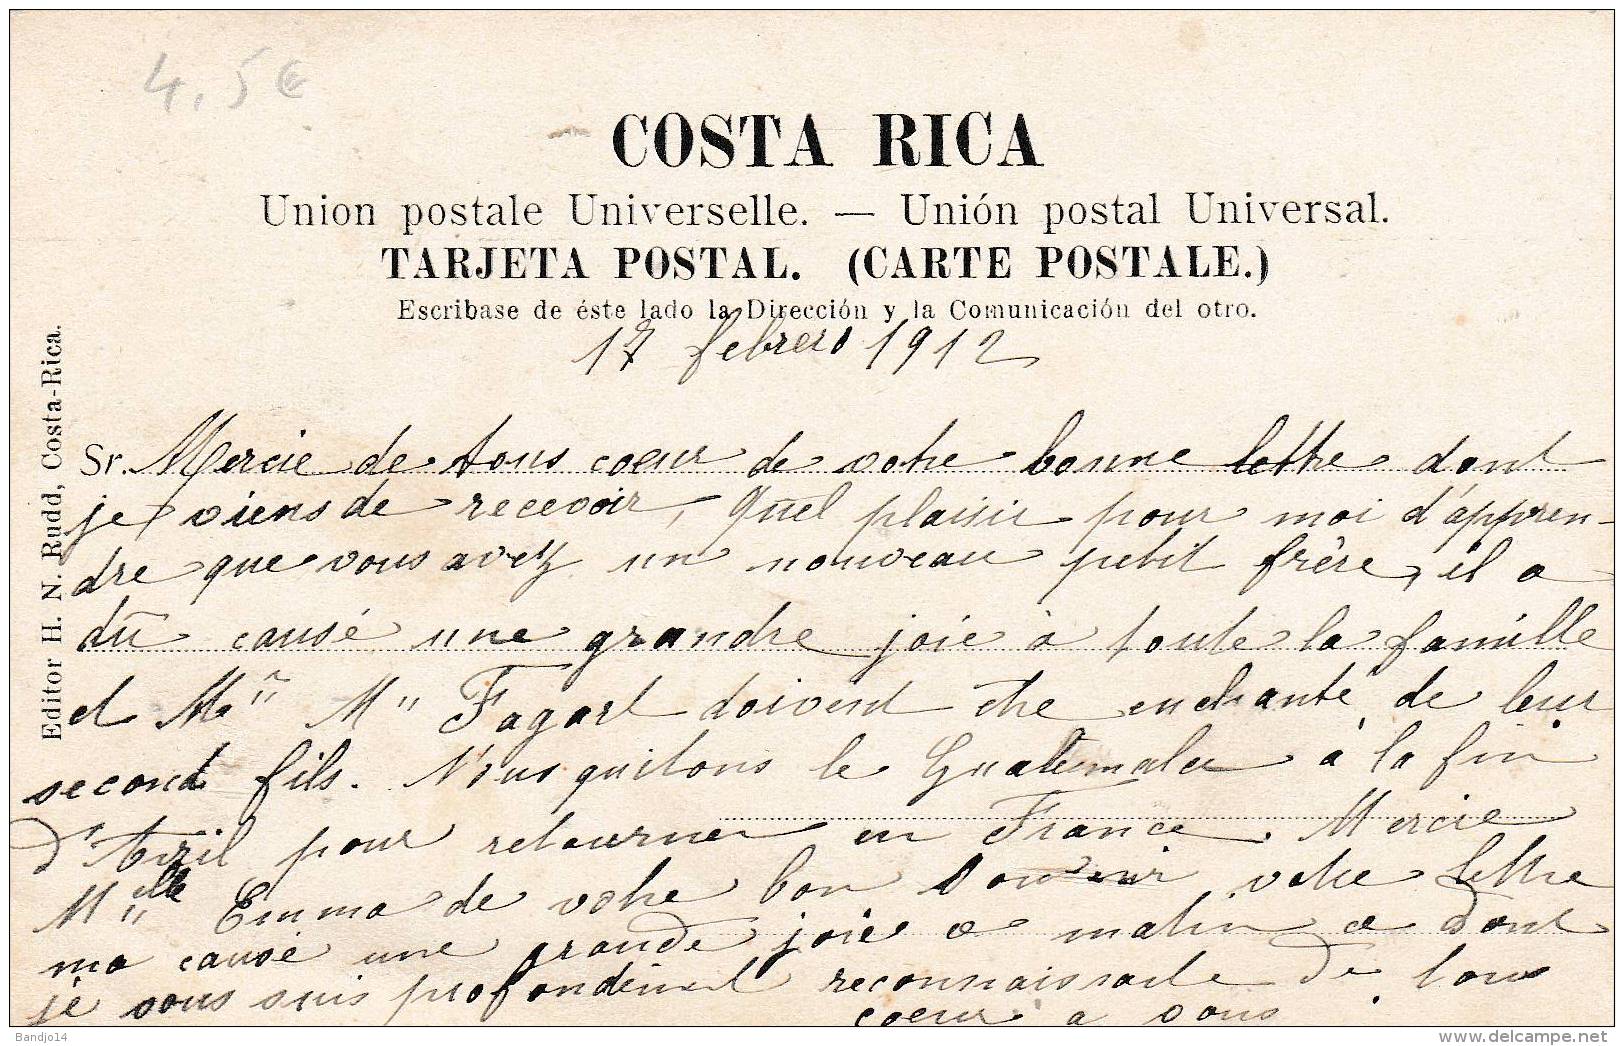 4,5€
COSTA RICA
Union postale Universelle. — Unión postal Universal.
TARJETA POSTAL. (CARTE POSTALE.)
Escribase de éste lado la Dirección y la Comunicación del otro.
17 febrero 1912
Editor H. N. Rudd, Costa-Rica.
Sr. Mercie de tous coeur de votre bonne lettre dont
je viens de recevoir, Quel plaisir pour moi d'appren-
dre que vous avez un nouveau petit frère, il a
dû causé une grande joie à toute la famille
et Mr Mme Fagart doivent être enchanté de leur
second fils. Nous quitons le Guatemala à la fin
d'Avril pour retourner en France. Mercie
Mlle Emma de votre bon Souvenir votre lettre
ma causé une grande joie ce matin ce dont
je vous suis profondément reconnaissante de tous
coeur a vous
Bandjo14
www.delcampe.net